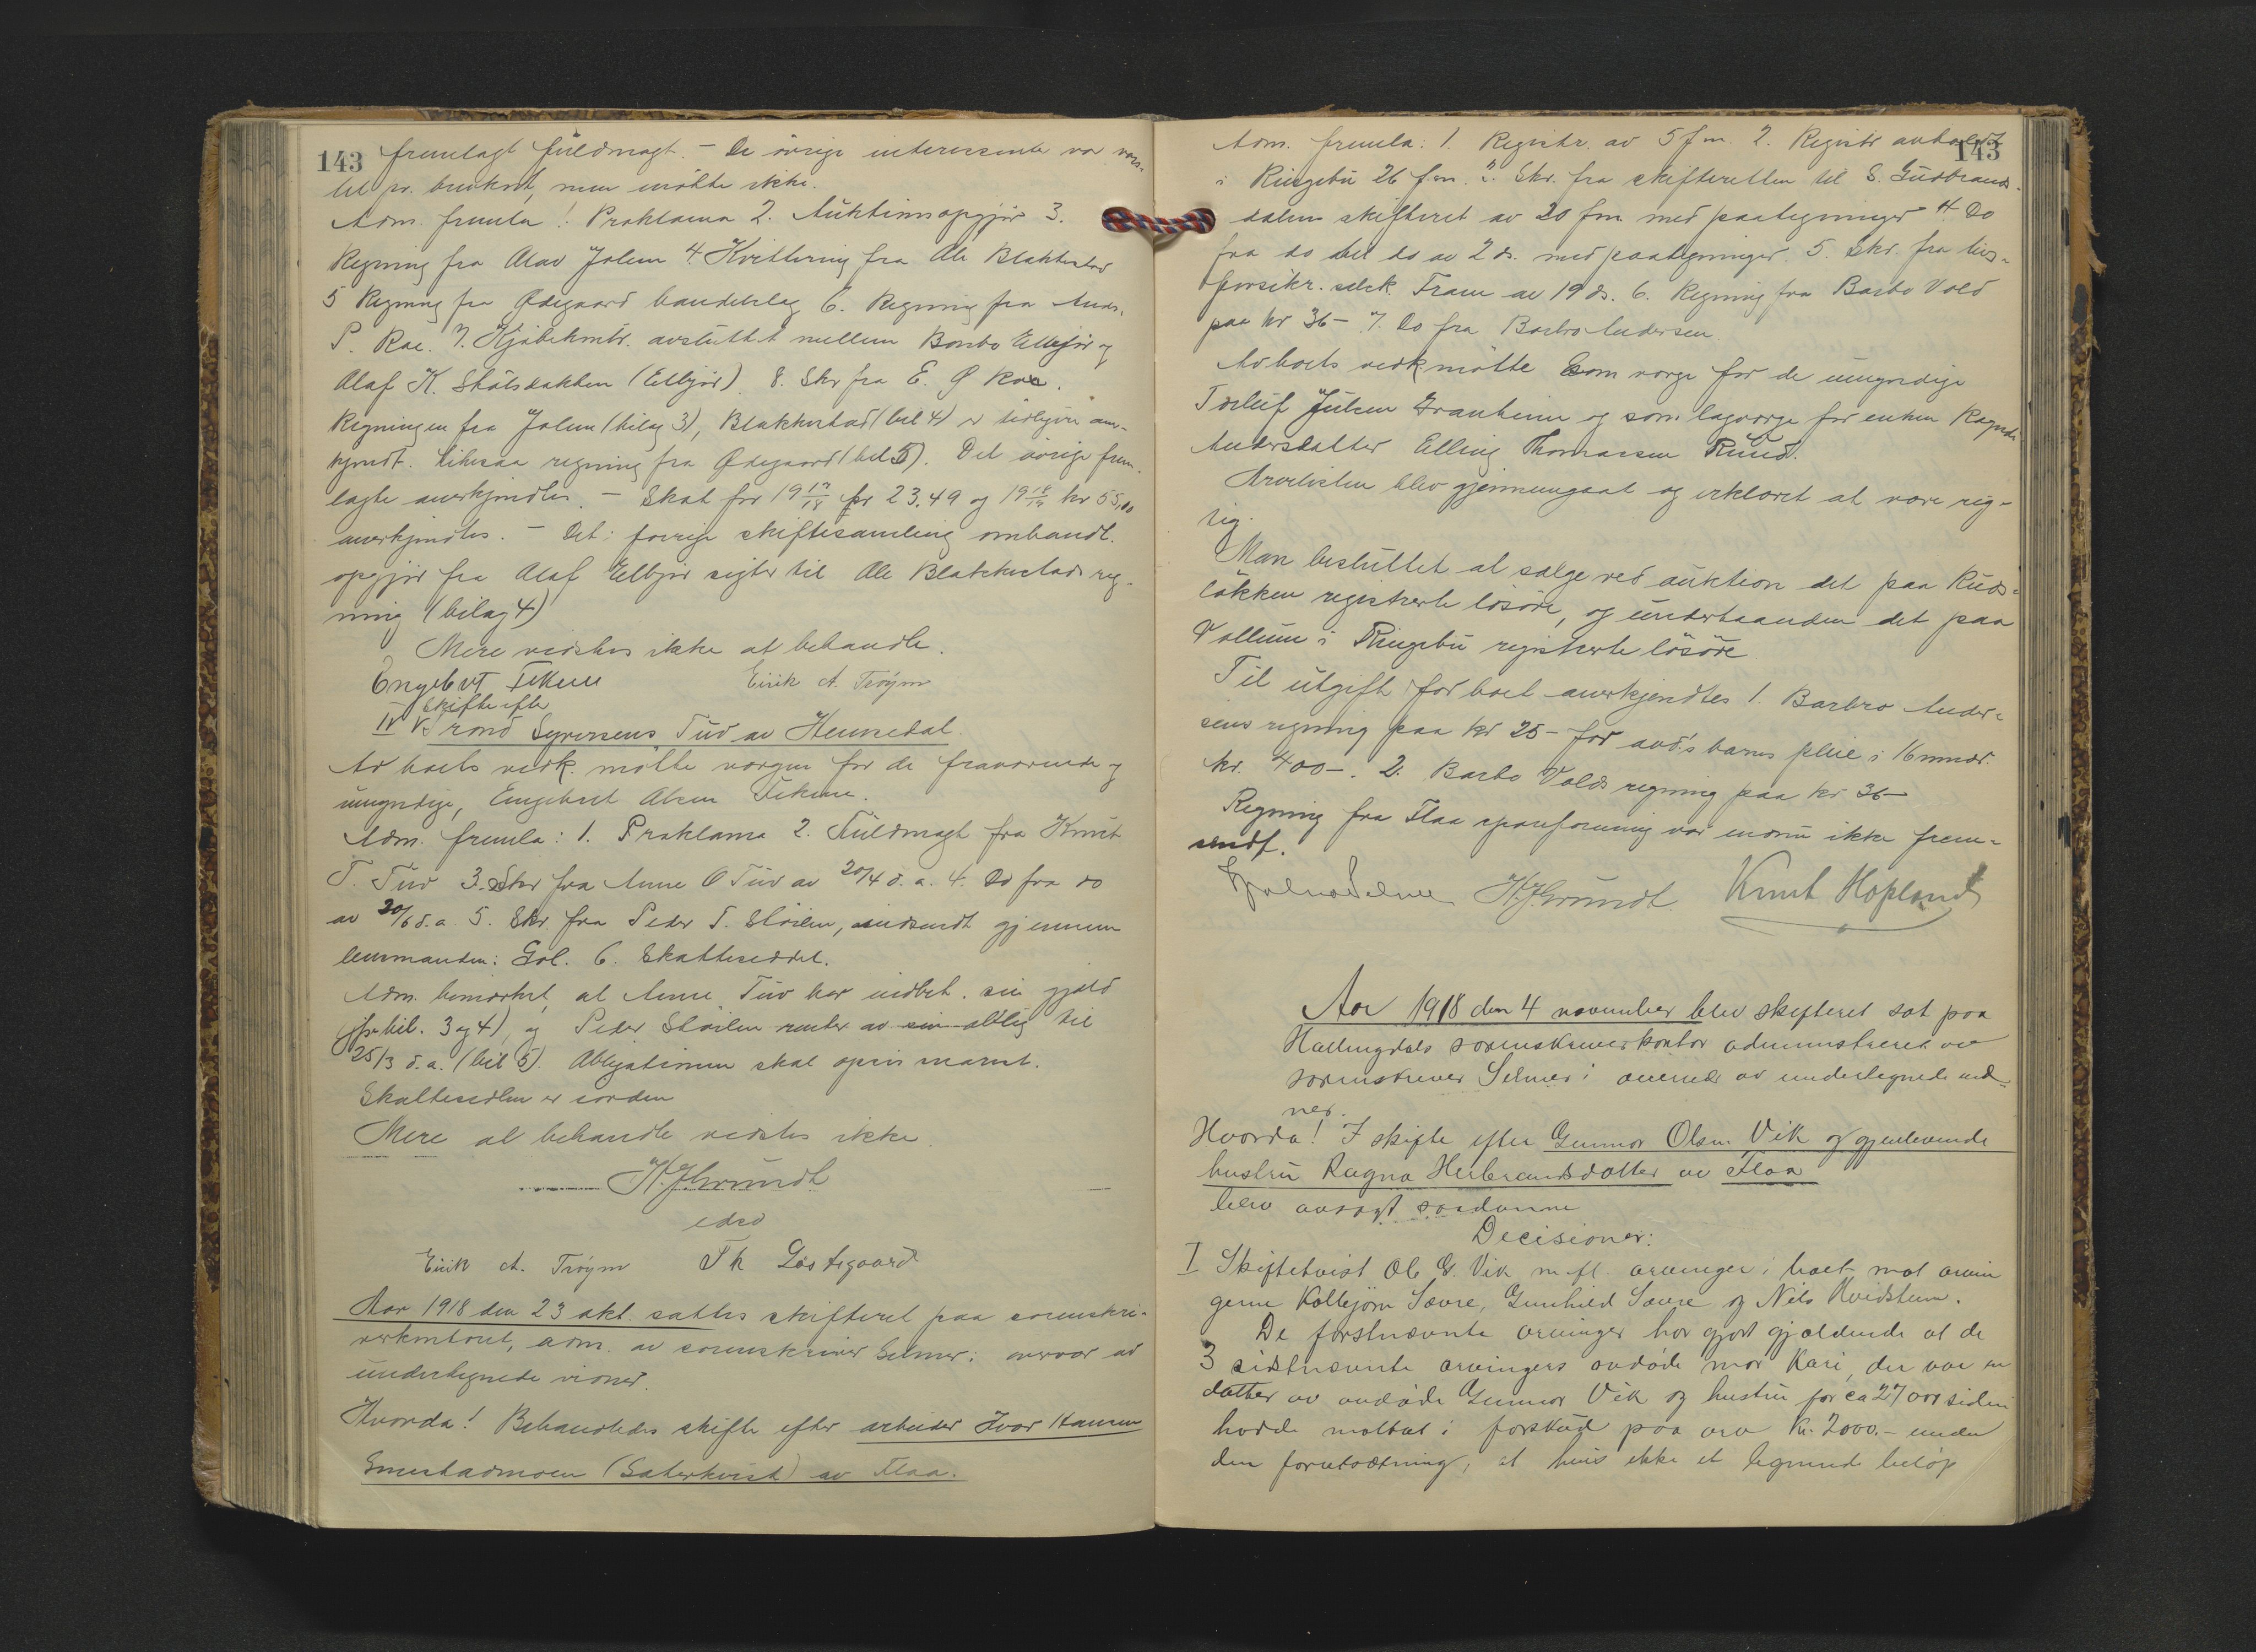 143
fremlagt fuldmagt. – De øvrige interessenter var
til pr. møtte ikke.
Adm. fremla: 1. Proklama 2. Auktionsopgjør 3.
Regning fra Olav Jolem 4. Kvittering fra Ole Blakkestad
5 Regning fra Ødegaard handelslag 6. Regning fra And.
P. Roe. 7. Kjøbekontr. avsluttet mellem Barbo Ellefjør og
Olaf K. (Elbjør). 8. Skr fra E. Ø Roe.
Regningen fra Jolem (bilag 3), Blakkestad (bil 4) er tidligere an-
kjendt. Likesaa regning fra Ødegaard (bil 5). Det øvrige frem-
lagte anerkjendtes. – Skat for 19 17/18 kr 23,49 og 19 18/19 kr 55,00
anerkjendtes. – Det i forrige skiftesamling omhandl.
opgjør fra Olaf Elbjør sigter til Ole Blakkestads reg-
ning (bilag 4)
Mere vidstes ikke at behandle.
Engebret Tekum Eirik A. Trøym
skifte efter
IV Trond Syversens Tuv av Hemsedal.
Av boets vedk. møtte vergen for de fraværende og
umyndige, Engebret Olsen Tekum.
Adm. fremla: 1. Proklama 2. Fuldmagt fra Knut
T. Tuv 3. Skr fra Anne O Tuv av 20/4 d.a. 4. Do fra do
av 20/6 d.a. 5. Skr. fra Peder T. Støilen, indsendt gjennem
lensmanden i Gol. 6. Skatteseddel.
Adm. bemærket, at Anne Tuv har indbet. sin gjæld
(jfr bil. 3 og 4), og Peder Støilen renter av sin oblig til
25/3 d.a. (bil 5). Obligationen skal opsis snarest.
Skatteseddelen er iorden
Mere at behandle vidstes ikke.
H.J.Grundt
edsv
Eirik A. Trøym Th Løstegaard
Aar 1918 den 23 okt. sattes skifteret paa sorenskri-
verkontoret, adm. av sorenskriver Selmer i overvær av
undertegnede vidner.
Hvorda! Behandledes skifte efter arbeider Ivar Hansen
Smestadmoen (Sæterkvist) av Flaa.
143
Adm. fremla: 1. Registr. av 5 f.m. 2. Registr avholdt
i Ringebu 26 f.m. 3. Skr. fra skifteretten til S. Gudbrands-
dalens skifteret av 20 f.m. med paategninger 4. Do
fra do til do av 2 ds. med paategninger. 5. Skr. fra livs-
forsikr. selsk. Fram av 19 ds. 6. Regning fra Barbo Vold
paa kr 36 – 7. Do fra Barbro Andersen.
Av boets vedk møtte som verge for de umyndige
Torleif Julsen Granheim og som lagverge for enken Ragndi
Andersdatter Elling Thomassen Ruud.
Arvelisten blev gjennemgaat og erklæret at være rig-
tig.
Man besluttet at sælge ved auktion det paa Ruds-
løkken registrerte løsøre, og underhaanden det paa
Vollum i Ringebu registrerte løsøre.
Til utgift for boet anerkjendtes 1. Barbro Ander-
sens regning paa kr 25 – for avd's barns pleie i 16 mndr.
kr. 400 –. 2. Barbo Volds regning paa kr 36 –
Regning fra Flaa sparforening var endnu ikke frem-
sendt.
Hjalmar Selmer H.J.Grundt Knut Hopland
Aar 1918 den 4 november blev skifteret sat paa
Hallingdals sorenskriverkontor administreret av
sorenskriver Selmer i overvær av undertegnede vid-
ner.
Hvorda! I skifte efter Gunnar Olsen Vik og gjenlevende
hustru Ragna Herbrandsdatter av Flaa
blev avsagt saadanne
Decisioner:
I Skiftetvist Ole G. Vik m.fl. arvinger i boet mot arvin
gerne Kolbjørn Sævre, Gunhild Sævre og Nils Kvidstun.
De førstnævnte arvinger har gjort gjældende at de
3 sidstnævnte arvingers avdøde mor Kari, der var en
datter av avdøde Gunnar Vik og hustru for ca 27 aar siden
hadde mottat i forskud paa arv kr. 2000.– under
den forutsætning, at hvis ikke et lignende beløp